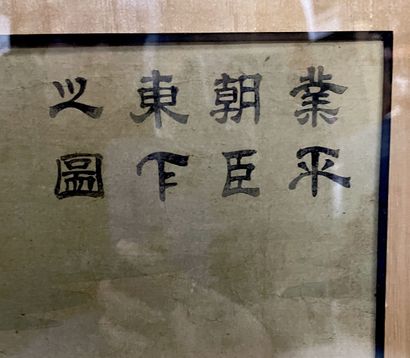 業平
朝臣
東下
之圖